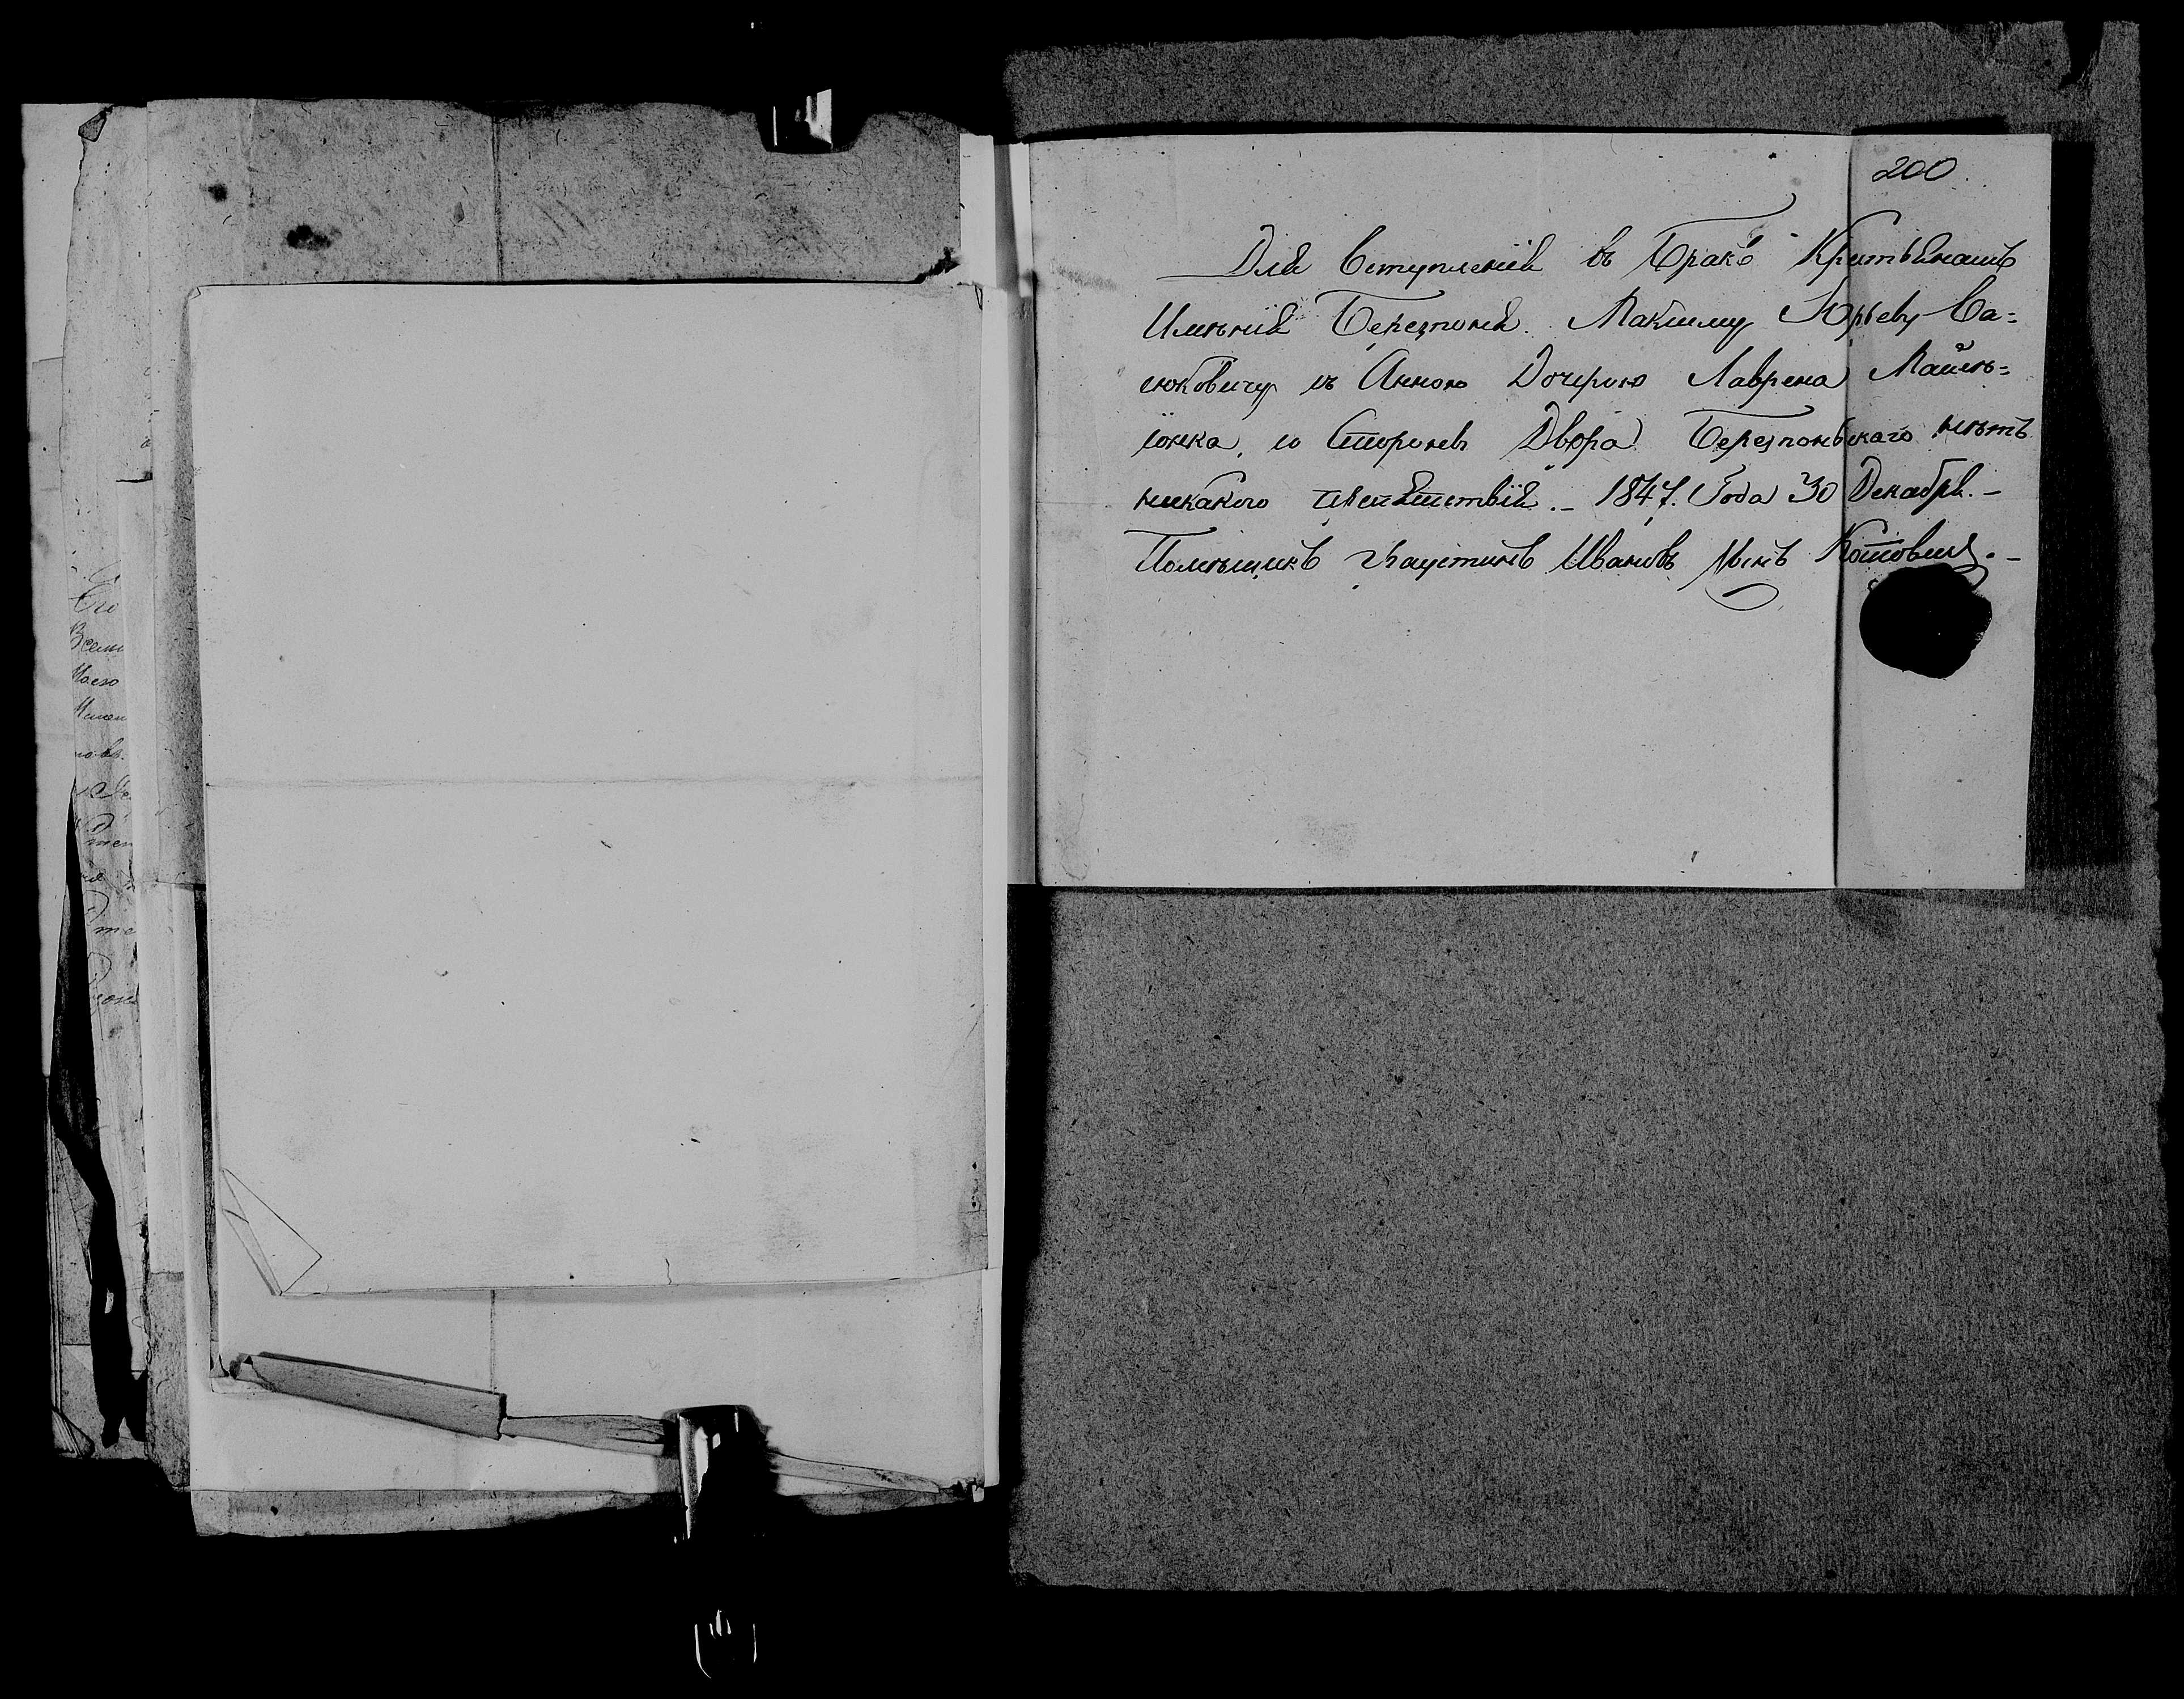 200
Для вступленія въ Бракъ Крестьянамъ
Имѣнія Березпоня. Максиму Юрьеву Ва=
сюковичу съ Анною Дочерью Лаврена
іонка, со Стороны Двора Березпоньскаго нѣтъ
никакого препятствія. – 1847. Года 30 Декабря. –
Помѣщикъ Фаустинъ Ивановъ Сынъ Котовичъ. –
Его
Всеми
Моего